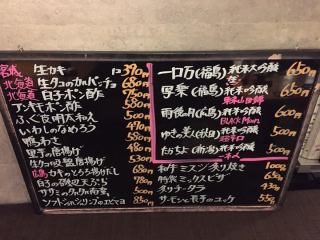 宮城 生カキ 1コ 390円
北海道 生タコのカルパッチョ 680円
北海道 白子ポン酢 750円
アンキモポン酢 580円
ふぐ皮明太和え 500円
いわしのなめろう
鴨ねぎ
里芋の唐揚げ 480円
唐揚げ 530円
広島 カキ 唐揚げだし 680円
白子の磯辺天ぷら 780円
ササミの 500円
ソフトシェルシュリンプのエビマヨ 850円
一口万(福島)純米大吟醸 生 650円
写楽(福島)純米吟醸 650円
東条山田錦
雨後の月(広島)純米吟醸 600円
BLACK Moon
ゆきの美人(秋田)純米吟醸 600円
超辛口
たかちよ(新潟)純米吟醸 500円
和牛ミスジ炙り焼き 1000円
特製ミックスピザ 650円
炙りチータラ 430円
サーモンと長芋のユッケ 550円